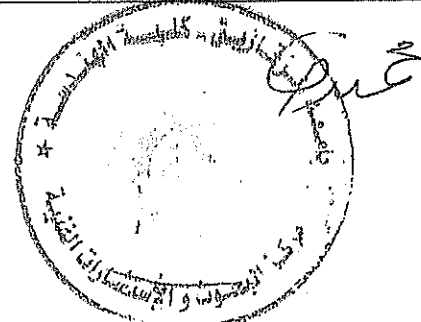 جامعة الزقازيق - كلية الهندسة
مركز البحوث والإستشارات الفنية